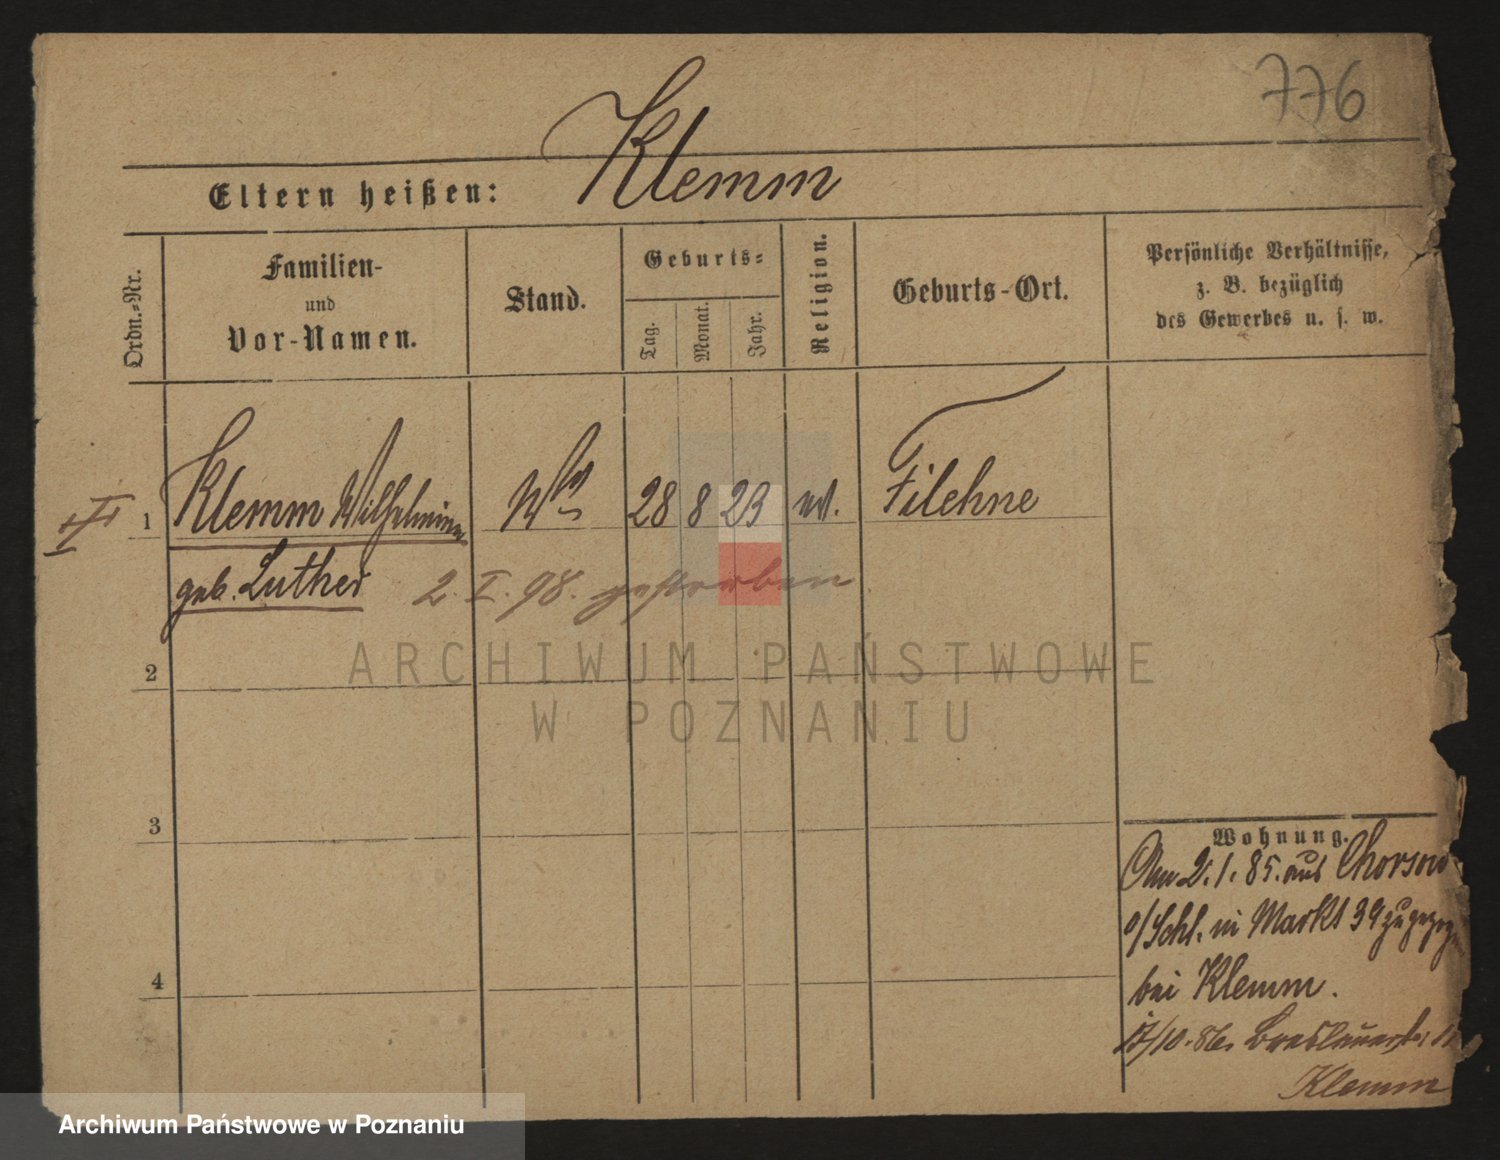 776
Klemm
Eltern heißen:
Ordn.-Nr.
Familien-
und
Vor-Namen.
Stand.
Geburts-
Tag.
Monat.
Jahr.
Religion.
Geburts-Ort.
Persönliche Verhältnisse,
z. B. bezüglich
des Gewerbes u. s. w.
1
Klemm Wilhelmine
28 8 23
Filehne
geb. Luther
2. I. 98. gestorben
ARCHIWUM PAŃSTWOWE
W POZNANIU
2
3
4
Wohnung.
Am 2.1.85. aus Chorsow
o/Schl. in Markt 39
bei Klemm.
17/10.86. Breslauerstr.
Klemm
Archiwum Państwowe w Poznaniu